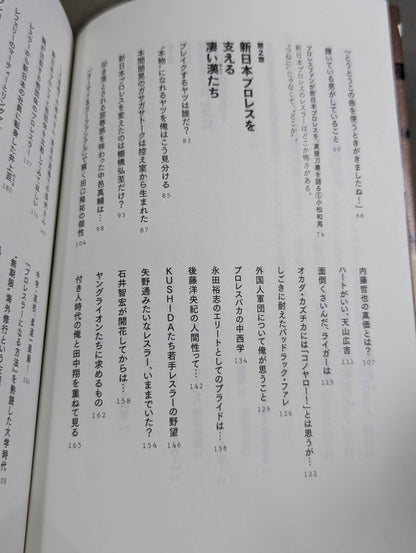 『とうとうこの曲を使うときがきましたね!』 68
輝いている男がしていること 69
プロレスファンが新日本プロレスを、真壁刀義を語る①小松和馬
新日本プロレスのレスラーはどこか怖さがある。
“つねに”じゃなくて、“どこか”。 74
第2章
新日本プロレスを
支える
凄い漢たち
ブレイクするヤツは誰だ? 82
“本物”になれるヤツを俺はこう見分ける 85
本間朋晃のガサガサトークは控え室から生まれた 87
新日本プロレスを変えたのは棚橋弘至だけ? 93
叩き落とされる屈辱感を味わった中邑真輔は… 98
で輝く田口隆祐の個性 104
内藤哲也の真価とは? 107
ハートがいい、天山広吉 111
面倒くさいんだ、ライガーは 115
オカダ・カズチカには「コノヤロー!」とは思うが… 122
しごきに耐えたバッドラック・ファレ 126
外国人軍団について俺が思うこと 129
プロレスバカの中西学 134
永田裕志のエリートとしてのプライドは… 138
後藤洋央紀の人間性って… 142
KUSHIDAたち若手レスラーの野望 146
矢野通みたいなレスラー、いままでいた? 154
石井智宏が開花してからは… 158
ヤングライオンたちに求めるもの 162
付き人時代の俺と田中翔を重ねて見る 165